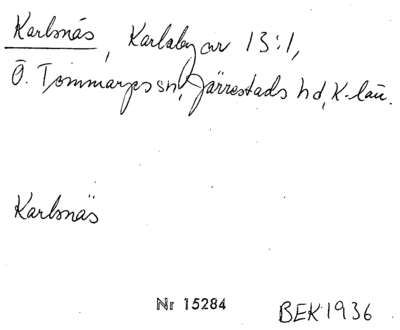 Karlsnäs, Karlaby nr 13:1,
Ö. Tommarps sn, Järrestads hd, K-län.
Karlsnäs
Nr 15284 BEK 1936